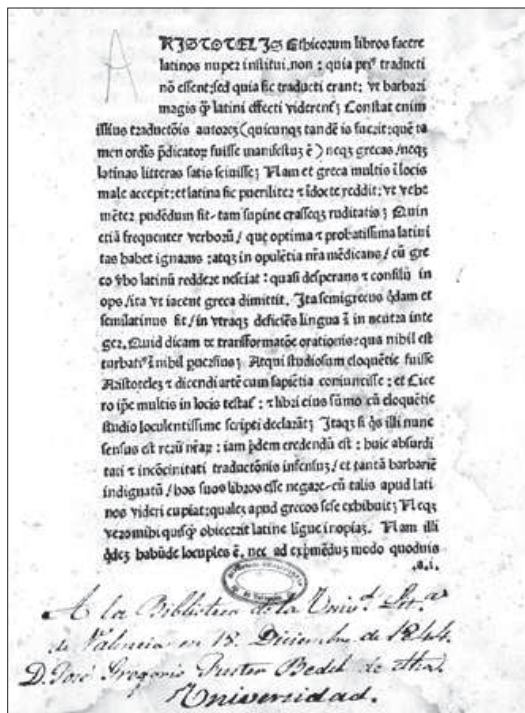 A
ARISTOTELIS Ethicorum libros facere
latinos nuper institui.non: quia priꝰ traducti
nõ essent:sed quia sic traducti erant: vt barbari
magis ꝙ̃ latini effecti viderent᷑ꝫ Constat enim
illius traductõis autorẽ(quicunqꝫ tandẽ is fuerit:quẽ ta
men ordĩs p̃dicatoꝝ fuisse manifestuꝫ ẽ) neqꝫ grecas/neqꝫ
latinas litteras satis sciuisseꝫ Nam et greca multis ĩ locis
male accepit:et latina sic pueriliter ⁊ ĩdocte reddit: vt vehe
mẽter pudẽdum sit tam supine crasseqꝫ ruditatisꝫ Quin
etiã frequenter verboꝝ/ que optima ⁊ probatissima latini
tas habet ignarus: atqꝫ in opulẽtia nr̃a mẽdicans/ cũ gre
co v̓bo latinũ reddere nesciat: quasi desperans ⁊ consilij in
ops/ita vt iacent greca dimittit. Ita semigrecus q̃dam et
semilatinus fit/in vtraqꝫ deficiẽs lingua ĩ in neutra inte
ger.Quid dicam de transformatõe orationis:qua nihil est
turbatiꝰ ĩ nihil puersiusꝫ Atqui studiosum eloquẽtie fuisse
Aristotelẽ ⁊ dicendi artẽ cum sapiẽtia coniunxisse: et Cice
ro ip̃e multis in locis testat᷑: ⁊ libri eius sũmo cũ eloquẽtie
studio loculentissime scripti declarãtꝫ Itaqꝫ si q̃s illi nunc
sensus est reꝝ nr̃aꝝ: iam p̃dem credendũ est: huic absurdi
tati ⁊ incõcinitati traductõnis infensuꝫ/et tantã barbariẽ
indignatũ/hos suos libros esse negare cũ talis apud lati
nos videri cupiat:quales apud grecos sese exhibuitꝫ Neqꝫ
vero mihi quisꝙ̃ obiecerit latine lĩgue ĩnopiaꝫ. Nam illi
q̃dẽ habũde locuples ẽ. nec ad exp̃mẽdũ modo quoduis
.a.i.
A la Biblioteca de la Univ.d Lit.a
de Valencia en 15. Diciembre de 1844.
D. José Gregorio Fuster Bedel de dha.
Universidad.